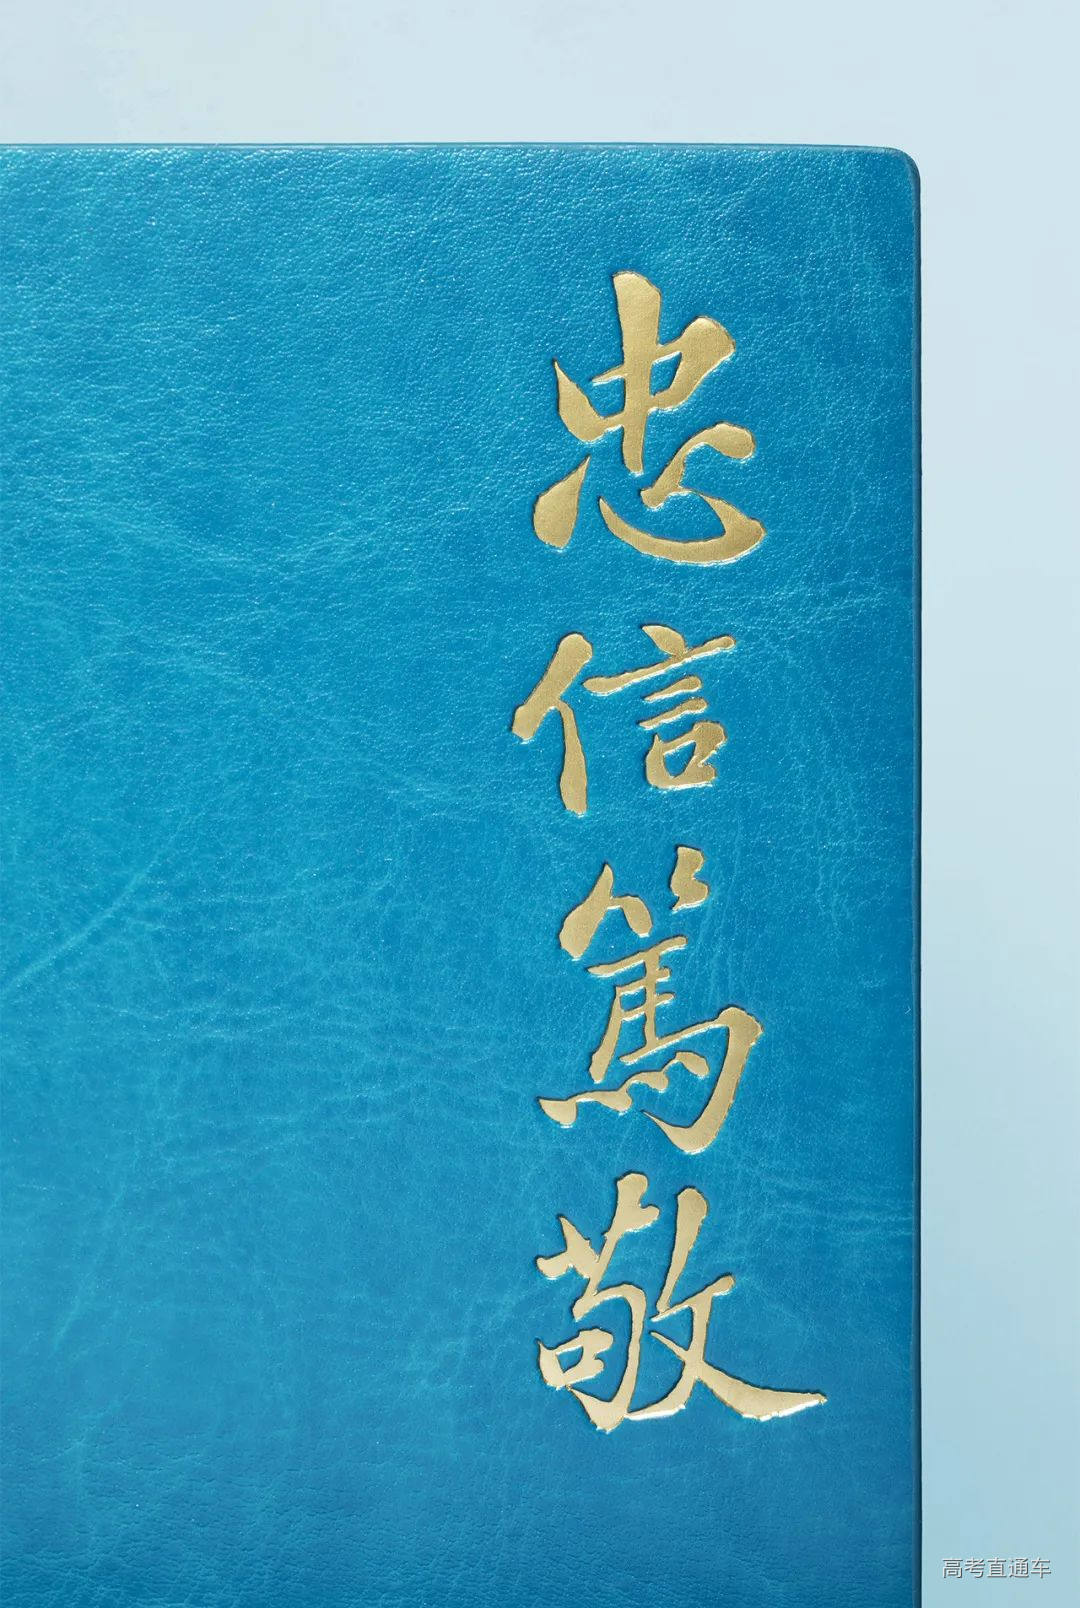 忠信篤敬
高考直通车